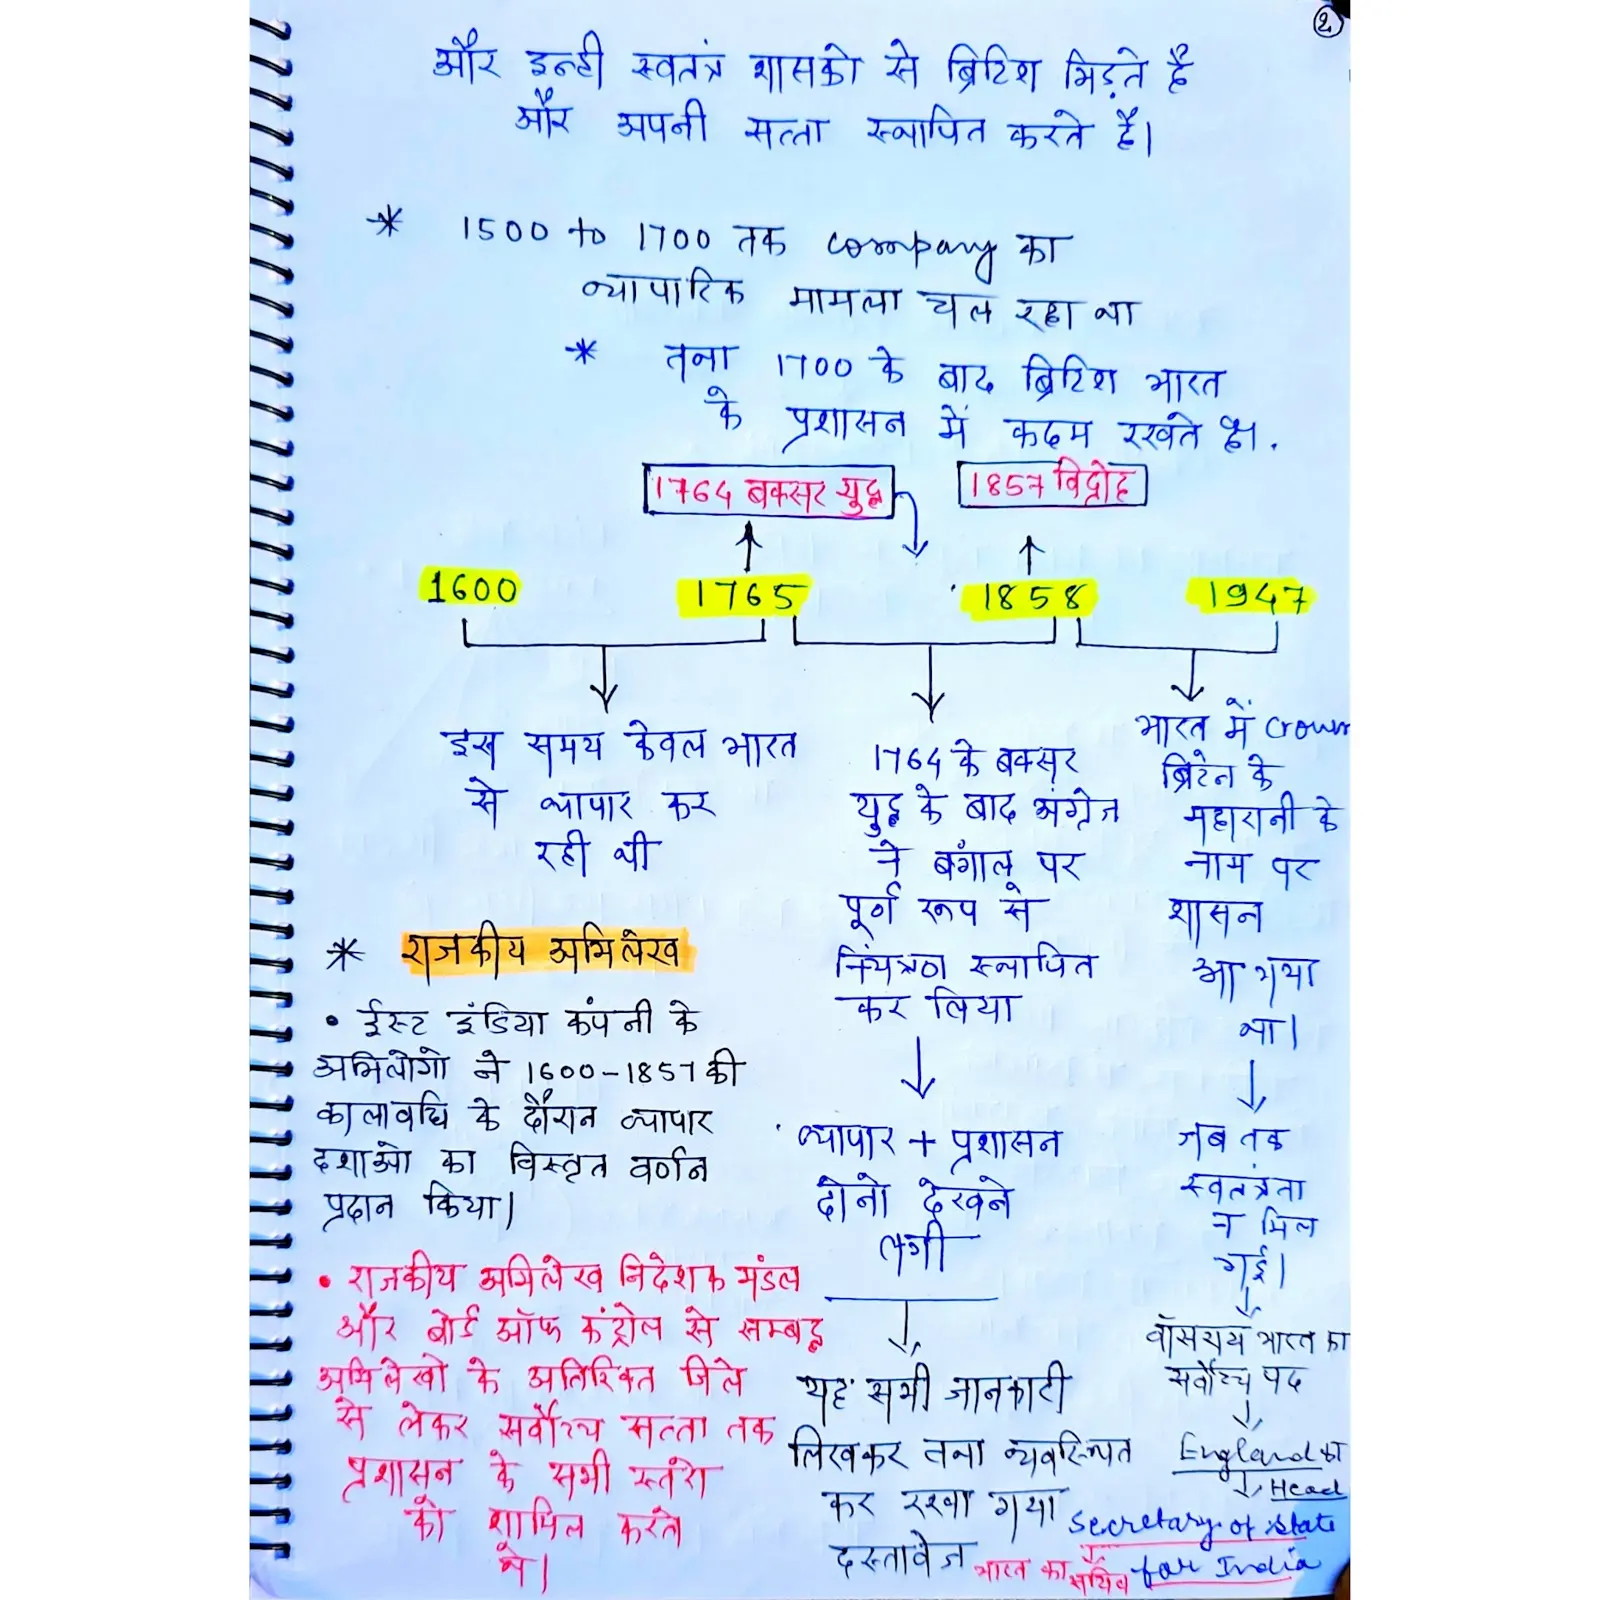 2
और इन्ही स्वतंत्र शासको से ब्रिटिश भिड़ते है
और अपनी सत्ता स्थापित करते है।
* 1500 to 1700 तक company का
व्यापारिक मामला चल रहा था
* तथा 1700 के बाद ब्रिटिश भारत
के प्रशासन में कदम रखते है।
1764 बक्सर युद्ध
1857 विद्रोह
1600
1765
1858
1947
इस समय केवल भारत
से व्यापार कर
रही थी
1764 के बक्सर
युद्ध के बाद अंग्रेज
ने बंगाल पर
पूर्ण रूप से
नियंत्रण स्थापित
कर लिया
व्यापार + प्रशासन
दोनो देखने
लगी
यह सभी जानकारी
लिखकर तथा व्यवस्थित
कर रखा गया
दस्तावेज
भारत में Crown
ब्रिटेन के
महारानी के
नाम पर
शासन
आ गया
था।
जब तक
स्वतंत्रता
न मिल
गई।
वॉसराय भारत का
सर्वोच्च पद
England का
Head
Secretary of state
for India
भारत का सचिव
* राजकीय अभिलेख
• ईस्ट इंडिया कंपनी के
अभिलोगो ने 1600-1857 की
कालावधि के दौरान व्यापार
दशाओ का विस्तृत वर्णन
प्रदान किया।
• राजकीय अभिलेख निदेशक मंडल
और बोर्ड ऑफ कंट्रोल से सम्बद्ध
अभिलेखो के अतिरिक्त जिले
से लेकर सर्वोच्च सत्ता तक
प्रशासन के सभी स्तरो
को शामिल करते
थे।